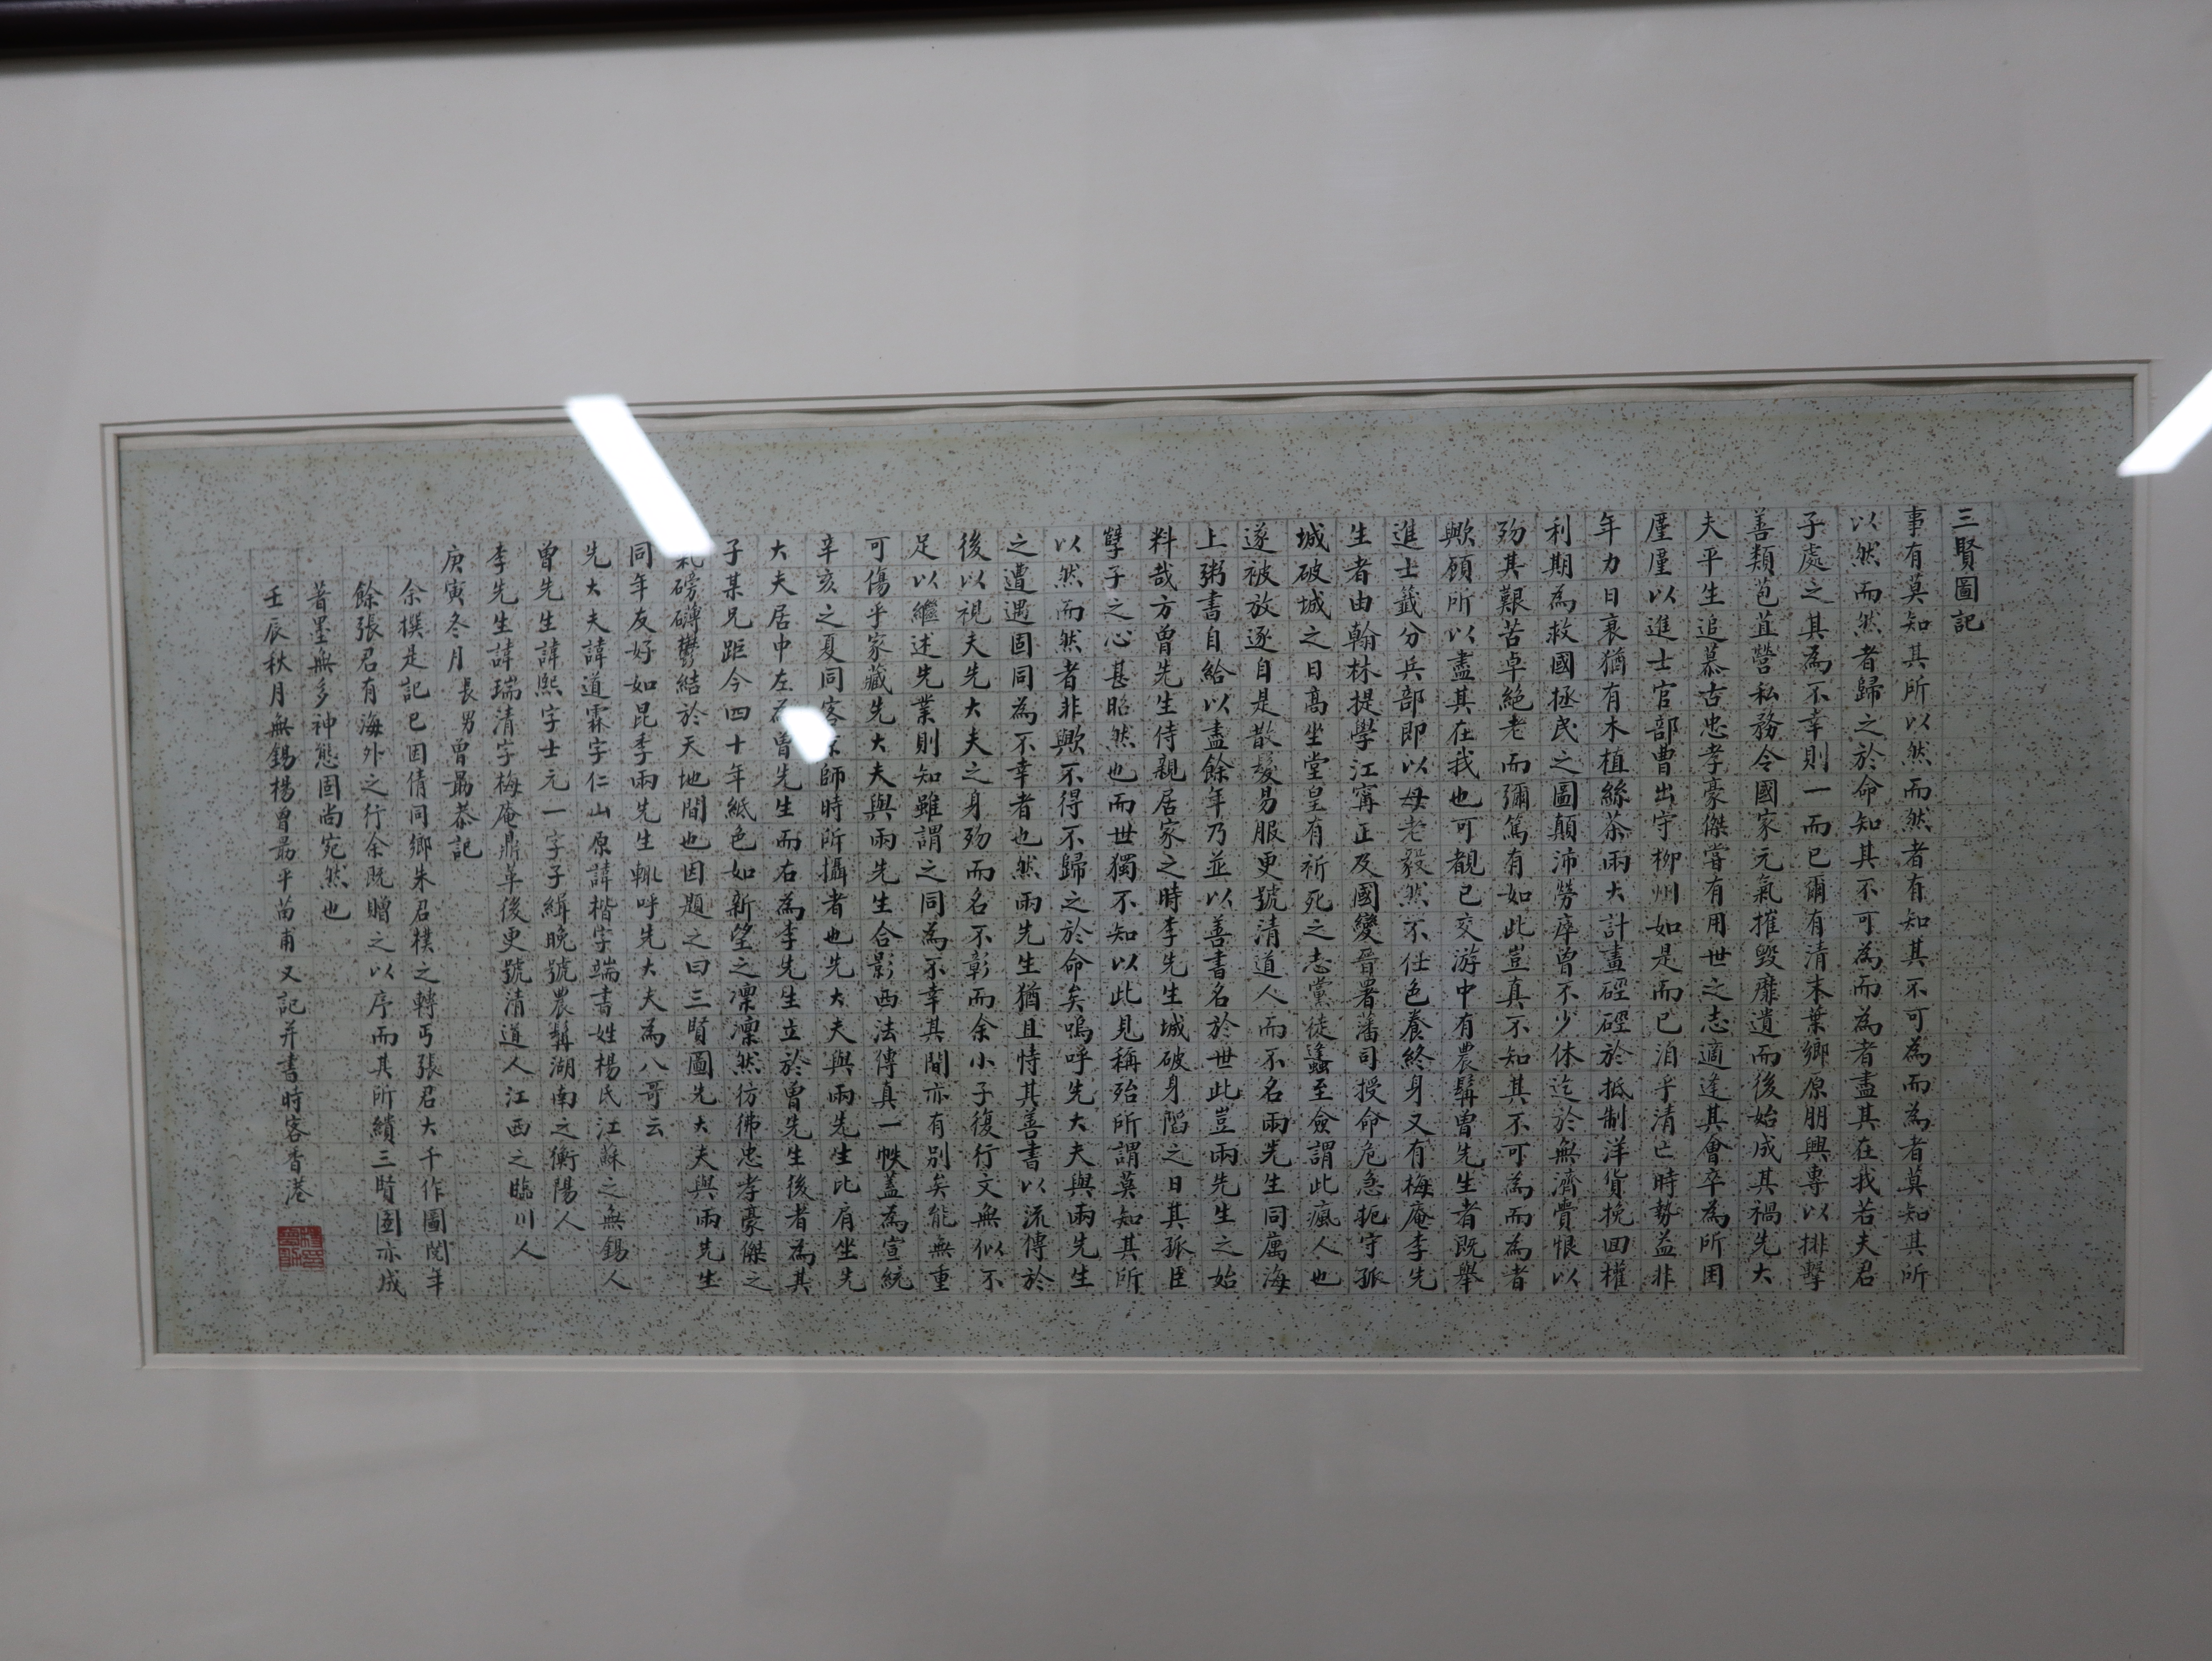 三賢圖記
事有莫知其所以然而然者有知其不可為而為者莫知其所
以然而然者歸之於命知其不可為而為者盡其在我若夫君
子處之其為不幸則一而已爾有清末葉鄉原朋興專以排擊
善類苞苴營私務令國家元氣摧毀靡遺而後始成其禍先大
夫平生追慕古忠孝豪傑嘗有用世之志適逢其會卒為所困
廑廑以進士官部曹出守柳州如是而已洎乎清亡時勢益非
年力日衰猶有木植絲茶兩大計畫硜硜於抵制洋貨挽回權
利期為救國拯民之圖顛沛勞瘁曾不少休迄於無濟賫恨以
歿其艱苦卓絕老而彌篤有如此豈真不知其不可為而為者
歟顧所以盡其在我也可覩已交游中有農髯曾先生者既舉
進士籤分兵部即以母老毅然不仕色養終身又有梅庵李先
生者由翰林提學江寗正及國變晉署藩司授命危急扼守孤
城破城之日高坐堂皇有祈死之志黨徒蠭至僉謂此瘋人也
遂被放逐自是散髮易服更號清道人而不名兩先生同厲海
上粥書自給以盡餘年乃並以善書名於世此豈兩先生之始
料哉方曾先生侍親居家之時李先生城破身陷之日其孤臣
孽子之心甚昭然也而世獨不知以此見稱殆所謂莫知其所
以然而然者非歟不得不歸之於命矣嗚呼先大夫與兩先生
之遭遇固同為不幸者也然兩先生猶且恃其善書以流傳於
後以視夫先大夫之身歿而名不彰而余小子復行文無似不
足以繼述先業則知雖謂之同為不幸其間亦有別矣能無重
可傷乎家藏先大夫與兩先生合影西法傳真一帙蓋為宣統
辛亥之夏同客師時所攝者也先大夫與兩先生比肩坐先
大夫居中左為曾先生而右為李先生立於曾先生後者為其
子某兄距今四十年紙色如新望之凜凜然彷彿忠孝豪傑之
氣磅礴鬱結於天地間也因題之曰三賢圖先大夫與兩先生
同年友好如昆季兩先生輒呼先大夫為八哥云
先大夫諱道霖字仁山原諱楷字端書姓楊氏江蘇之無錫人
曾先生諱熙字士元一字子緝晚號農髯湖南之衡陽人
李先生諱瑞清字梅庵鼎革後更號清道人江西之臨川人
庚寅冬月長男曾勗恭記
余撰是記已因倩同鄉朱君樸之轉丐張君大千作圖閱年
餘張君有海外之行余既贈之以序而其所繢三賢圖亦成
着墨無多神態固尚宛然也
壬辰秋月無錫楊曾勗平苗甫又記并書時客香港